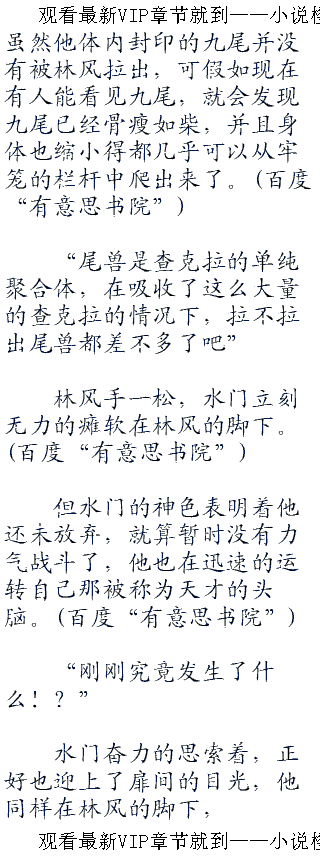 观看最新VIP章节就到——小说检
虽然他体内封印的九尾并没
有被林风拉出，可假如现在
有人能看见九尾，就会发现
九尾已经骨瘦如柴，并且身
体也缩小得都几乎可以从牢
笼的栏杆中爬出来了。(百度
“有意思书院”)
“尾兽是查克拉的单纯
聚合体，在吸收了这么大量
的查克拉的情况下，拉不拉
出尾兽都差不多了吧”
林风手一松，水门立刻
无力的瘫软在林风的脚下。
(百度“有意思书院”)
但水门的神色表明着他
还未放弃，就算暂时没有力
气战斗了，他也在迅速的运
转自己那被称为天才的头
脑。(百度“有意思书院”)
“刚刚究竟发生了什
么！？”
水门奋力的思索着，正
好也迎上了扉间的目光，他
同样在林风的脚下，
观看最新VIP章节就到——小说检